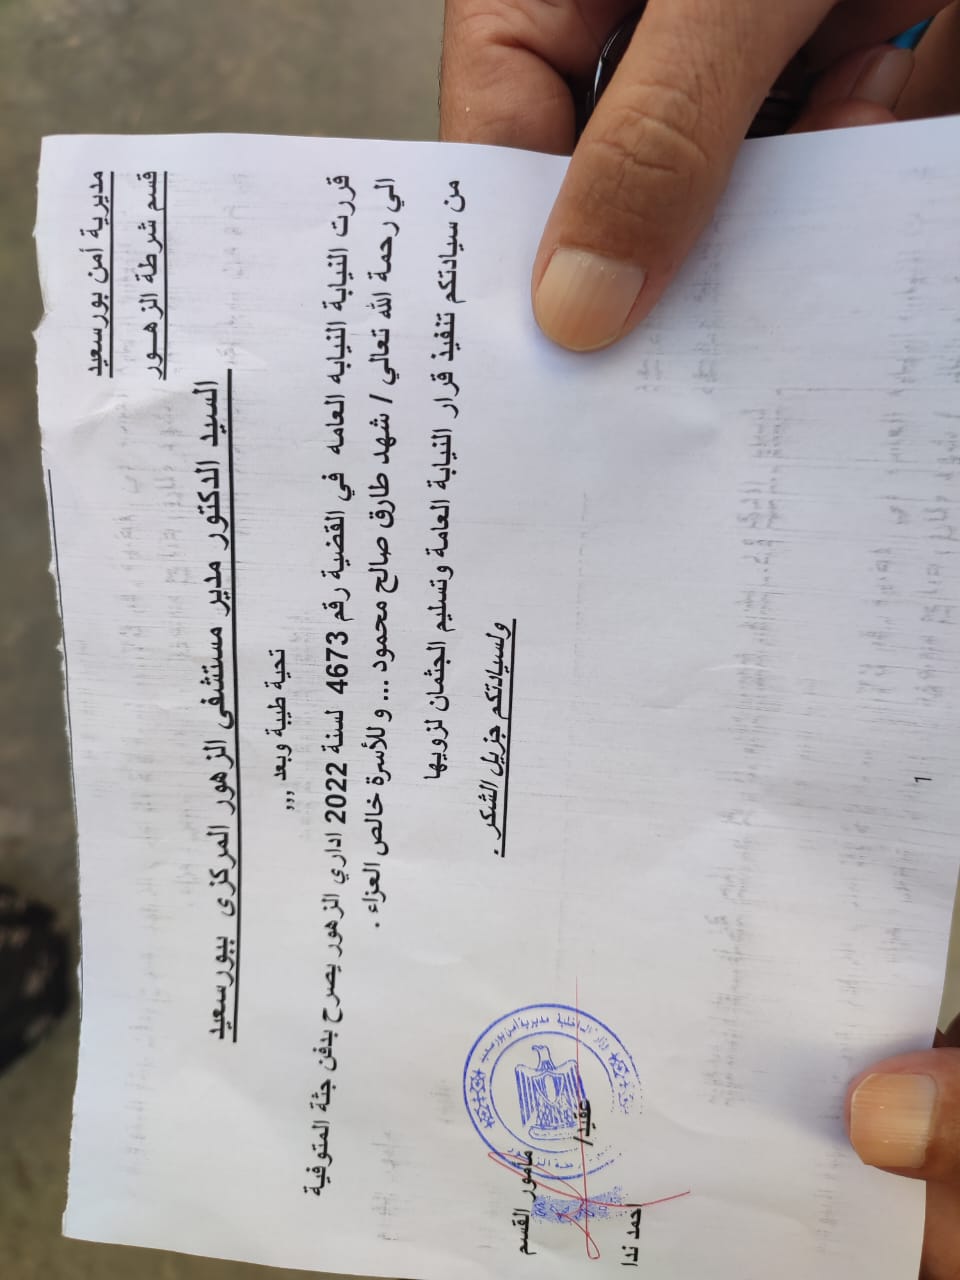 مديرية أمن بورسعيد
قسم شرطة الزهور
السيد الدكتور مدير مستشفى الزهور المركزى ببورسعيد
تحية طيبة وبعد ,,,
قررت النيابة النيابه العامه في القضية رقم 4673 لسنة 2022 اداري الزهور يصرح بدفن جثة المتوفية
الي رحمة الله تعالي / شهد طارق صالح محمود ... و للأسرة خالص العزاء .
من سيادتكم تنفيذ قرار النيابة العامة وتسليم الجثمان لزويها
ولسيادتكم جزيل الشكر .
مأمور القسم
عقيد/
احمد ندا
وزارة الداخلية مديرية أمن بورسعيد
1